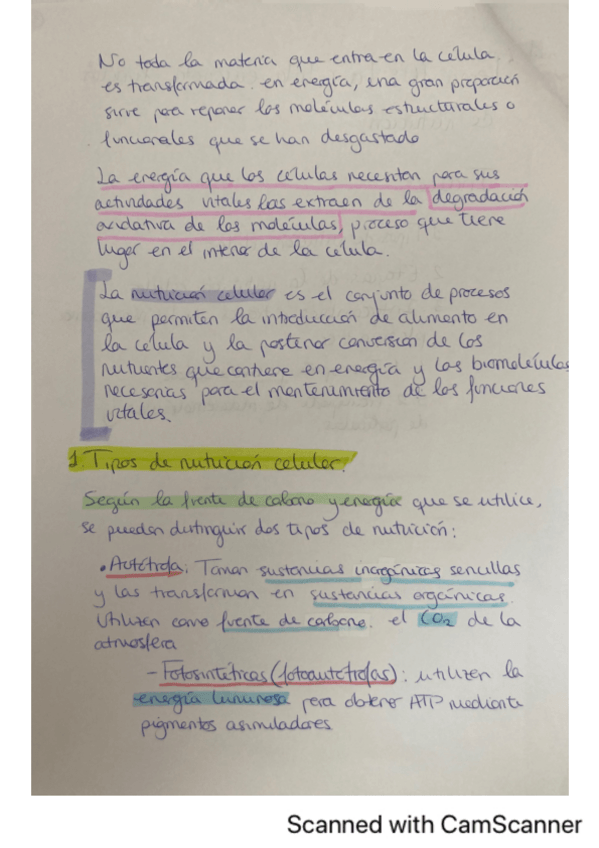 No toda la materia que entra en la célula
es transformada en energía, una gran proporción
sirve para reponer las moléculas estructurales o
funcionales que se han desgastado
La energía que las células necesitan para sus
actividades vitales las extraen de la degradación
oxidativa de las moléculas, proceso que tiene
lugar en el interior de la célula.
La nutrición celular es el conjunto de procesos
que permiten la introducción de alimento en
la célula y la posterior conversión de los
nutrientes que contiene en energía y las biomoléculas
necesarias para el mantenimiento de las funciones
vitales.
1. Tipos de nutrición celular.
Según la fuente de carbono y energía que se utilice,
se pueden distinguir dos tipos de nutrición:
• Autótrofa: Toman sustancias inorgánicas sencillas
y las transforman en sustancias orgánicas.
Utilizan como fuente de carbono. el CO₂ de la
atmosfera
- Fotosintéticas (fotoautótrofas): utilizan la
energía luminosa para obtener ATP mediante
pigmentos asimiladores
Scanned with CamScanner